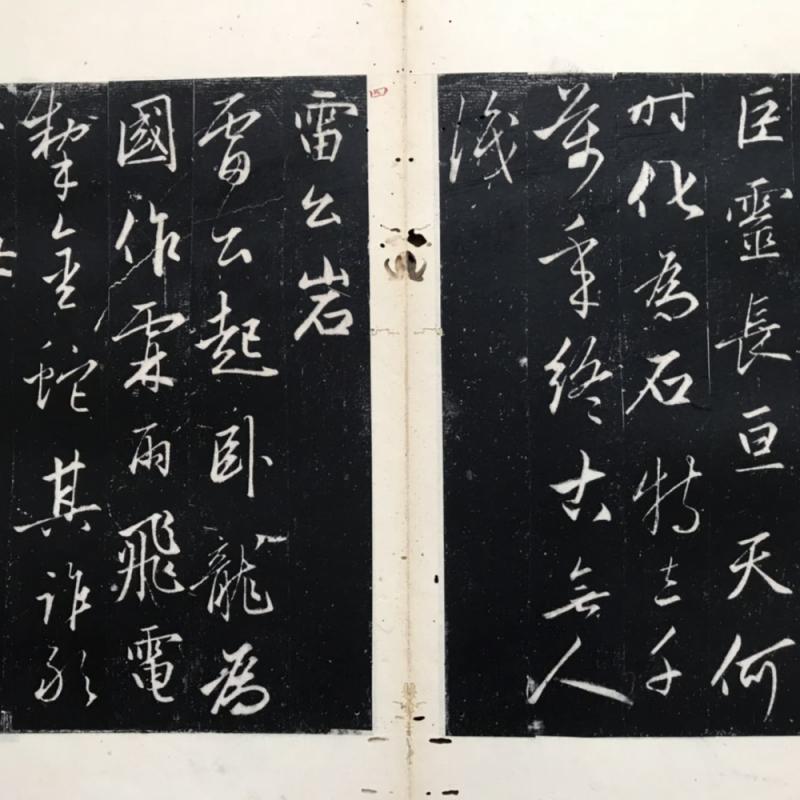 巨靈長亘天何
时化為石特立千
萬年終古無人
識
雷公岩
雷公起卧龍為
國作霖雨飛電
掣金蛇其誰敢